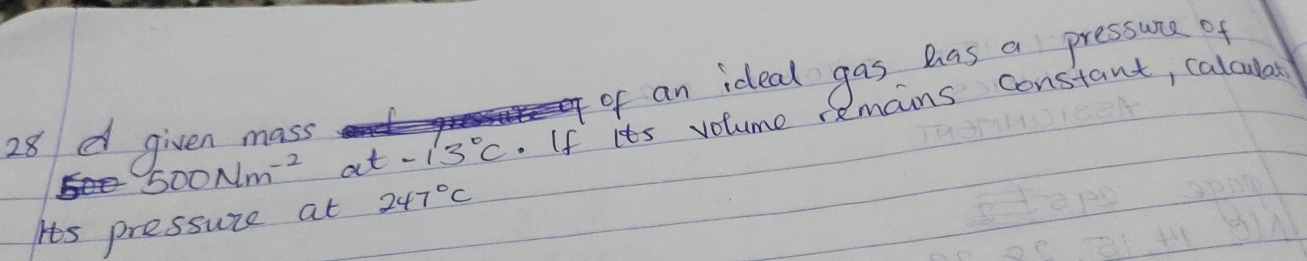 28 A given mass of an ideal gas has a pressure of
500Nm⁻² at -13°C. If its volume remains constant, calculate
its pressure at 247°C